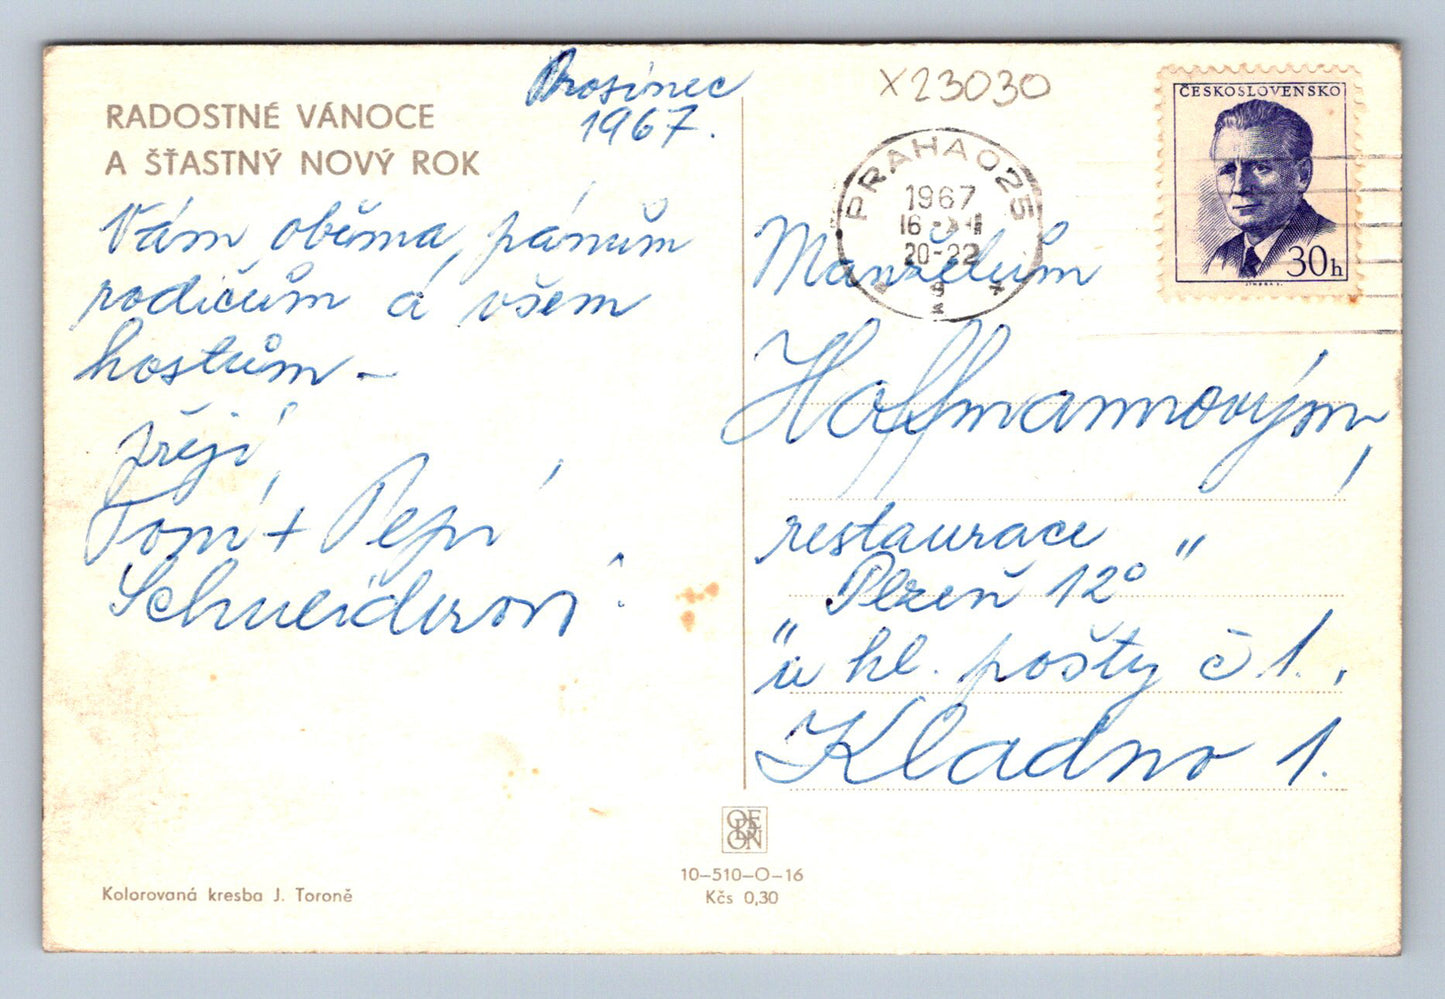 Prosinec
1967.
RADOSTNÉ VÁNOCE
A ŠŤASTNÝ NOVÝ ROK
Vám oběma, pánům
rodičům a všem
hostům –
přejí
Tom + Pepi
Schneiderovi
X23030
PRAHA 025
1967
16
20-22
ČESKOSLOVENSKO
30h
Manželům
Hoffmannovým,
restaurace
"Plzeň 12°"
u hl. pošty č 1.,
Kladno 1.
ODEON
10–510–O–16
Kčs 0,30
Kolorovaná kresba J. Toroně